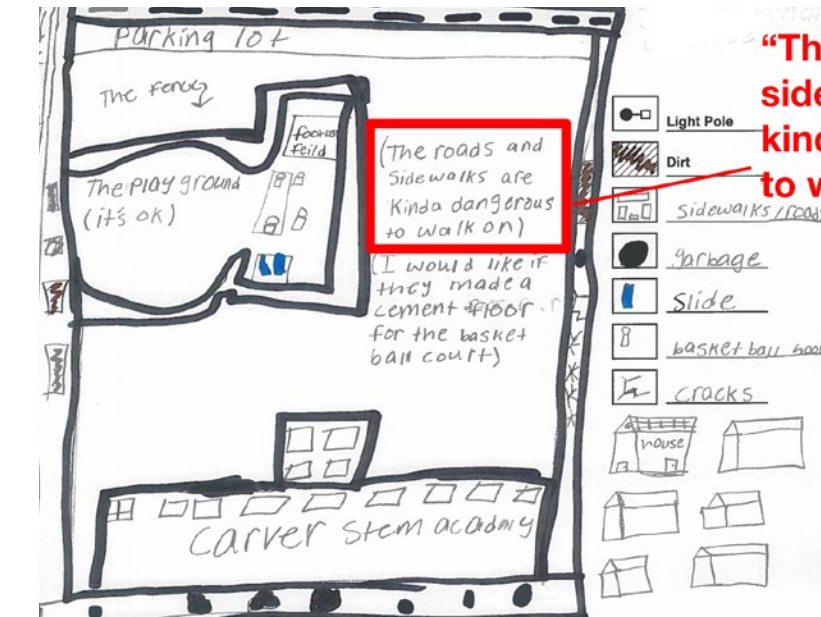 Parking lot
The fence
football
feild
The play ground
(it's ok)
(The roads and
Sidewalks are
Kinda dangerous
to walk on)
(I would like if
they made a
cement floor
for the basket
ball court)
Carver Stem acadmiy
"Th
side
kind
to w
Light Pole
Dirt
Sidewalks/roads
garbage
Slide
basket ball hoo
cracks
house